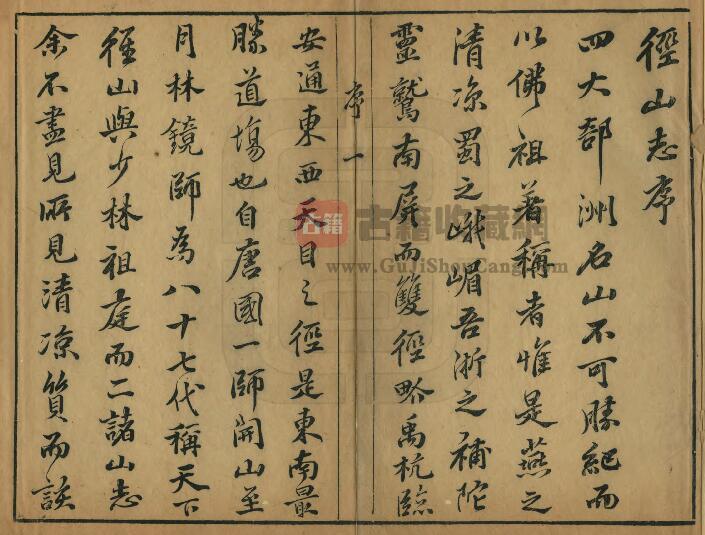 徑山志序
四大部洲名山不可勝紀而
以佛祖著稱者惟是燕之
清凉蜀之峨嵋吾浙之補陀
靈鷲南屏而雙徑畍禹杭臨
序 一
安通東西天目之徑是東南最
勝道塲也自唐國一師開山至
月林鏡師為八十七代稱天下
徑山與少林祖庭而二諸山志
余不盡見所見清凉質而談
古籍
古籍收藏網
www.GuJiShouCang.com